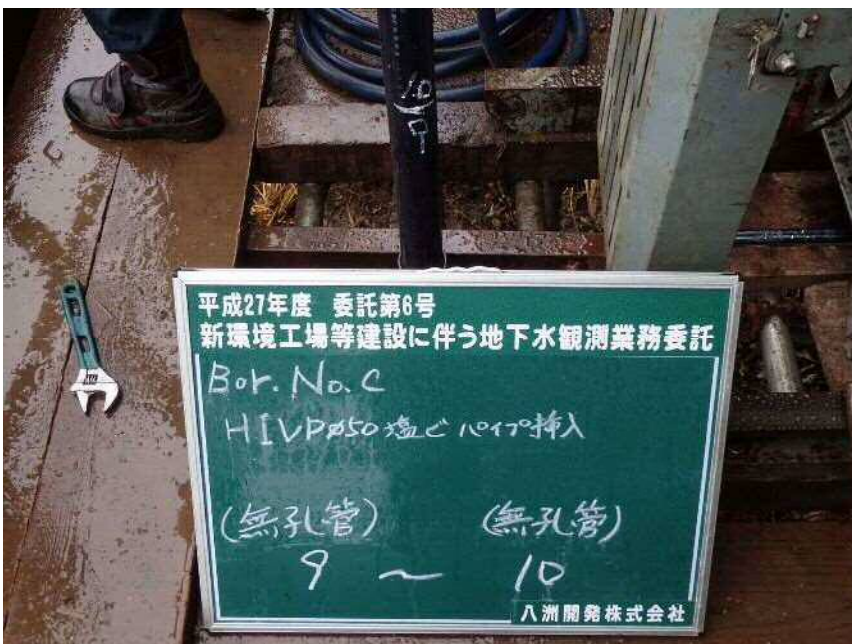 10
9
平成27年度 委託第6号
新環境工場等建設に伴う地下水観測業務委託
Bor. No. C
HIVPø50塩ビパイプ挿入
(無孔管) (無孔管)
9 ~ 10
八洲開発株式会社